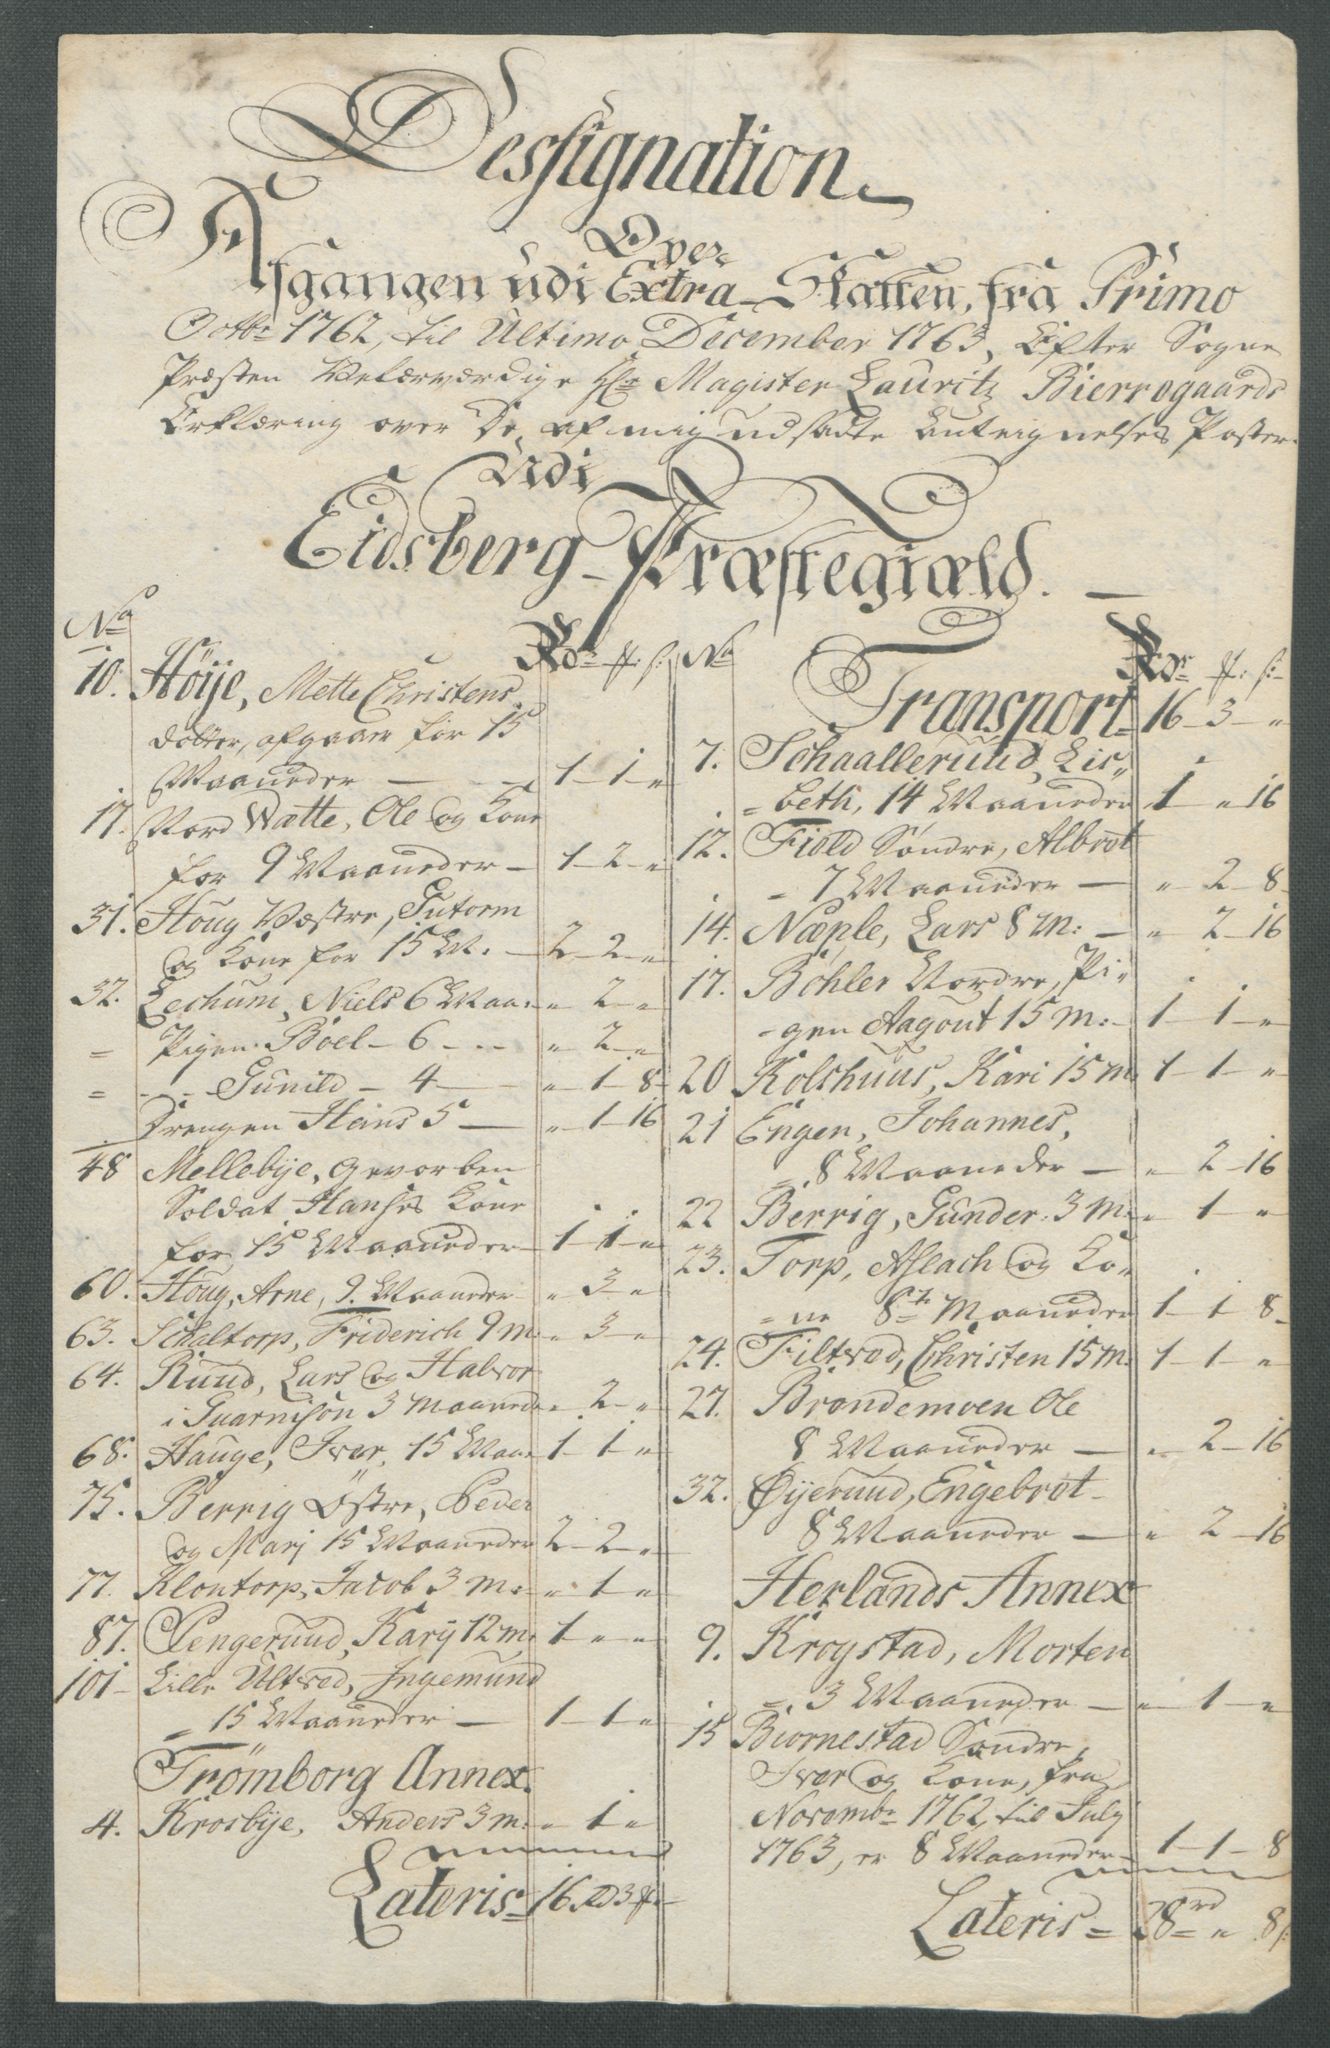 Dessignation
Over
Afgangen udi Extra-Skatten, fra Primo
Octbr 1762, til Ultimo December 1763, Efter Sogne
Præsten Velærværdige Hr Magister Lauritz Bierregaards
Erklæring over De af mig udsadte Qutteignelses Poster
Udi
Eidsberg-Præstegiæld.
No Rdr ff: s:
10. Höije, Mette Christens
dotter, afgaaer for 15
Maaneder — 1-1-"
17. Nord Wætte, Ole og Kone
for 9 Maaneder — 1-2-"
31. Houg Væstre, Gutorm
og Kone for 15 M. — 2-2-"
32. Lechum, Niels 6 Maa: "-2-"
= Pigen Böel - 6 - "-2-"
= - Gunild - 4 — "-1-8
Drengen Hans 5 — "-1-16
48 Mellebije, Gevorben
Soldat Hanses Kone
for 15 Maaneder 1-1-"
60. Houg, Arne, 9. Maaneder "-3-"
63. Schaltorp, Friderich 9 M: "-3-"
64. Ruud, Lars og Halvor
i Guarnison 3 Maaned "-2-"
68. Hauge, Iver, 15 Maa: 1-1-"
75. Berrig Östre, Peder
og Marj 15 Maaneder 2-2-"
77. Klontorp, Jacob 3 M: "-1-"
87. Pengerud, Karij 12 M: 1-"-"
101- Lille Ultved, Ingemund
= 15 Maaneder — 1-1-"
Trömborg Annex.
4. Krosbije, Anders 3 M: "-1-"
Lateris = 16 Rd 3 ff
No Rdr ff: s:
Transport = 16-3-"
7. Schaallerud, Lis=
=beth, 14 Maaneder 1-"-16
12. Field Söndre, Albret
= 7 Maaneder — "-2-8
14. Næple, Lars 8 M: — "-2-16
17. Böhler Nordre, Pi=
=gen Aagout 15 M: 1-1-"
20 Kolshuus, Kari 15 M 1-1-"
21 Engen, Johannes,
= 8 Maaneder — "-2-16
22 Berrig, Gunder 3 M: "-1-"
23. Torp, Aslach og Ko=
=ne 8 Maaneder 1-1-8
24. Filtved, Christen 15 M. 1-1-"
27. Brandemoen Ole
8 Maaneder — "-2-16
32. Øijerud, Engebret
8 Maaneder — "-2-16
Herlands Annex
9. Krogstad, Morten
= 3 Maaneder — "-1-"
15 Biornestad Söndre,
Iver og Kone, fra
Novembr 1762, til Julij
1763, er 8 Maaneder 1-1-8
Lateris = 28 rd " 8 s: